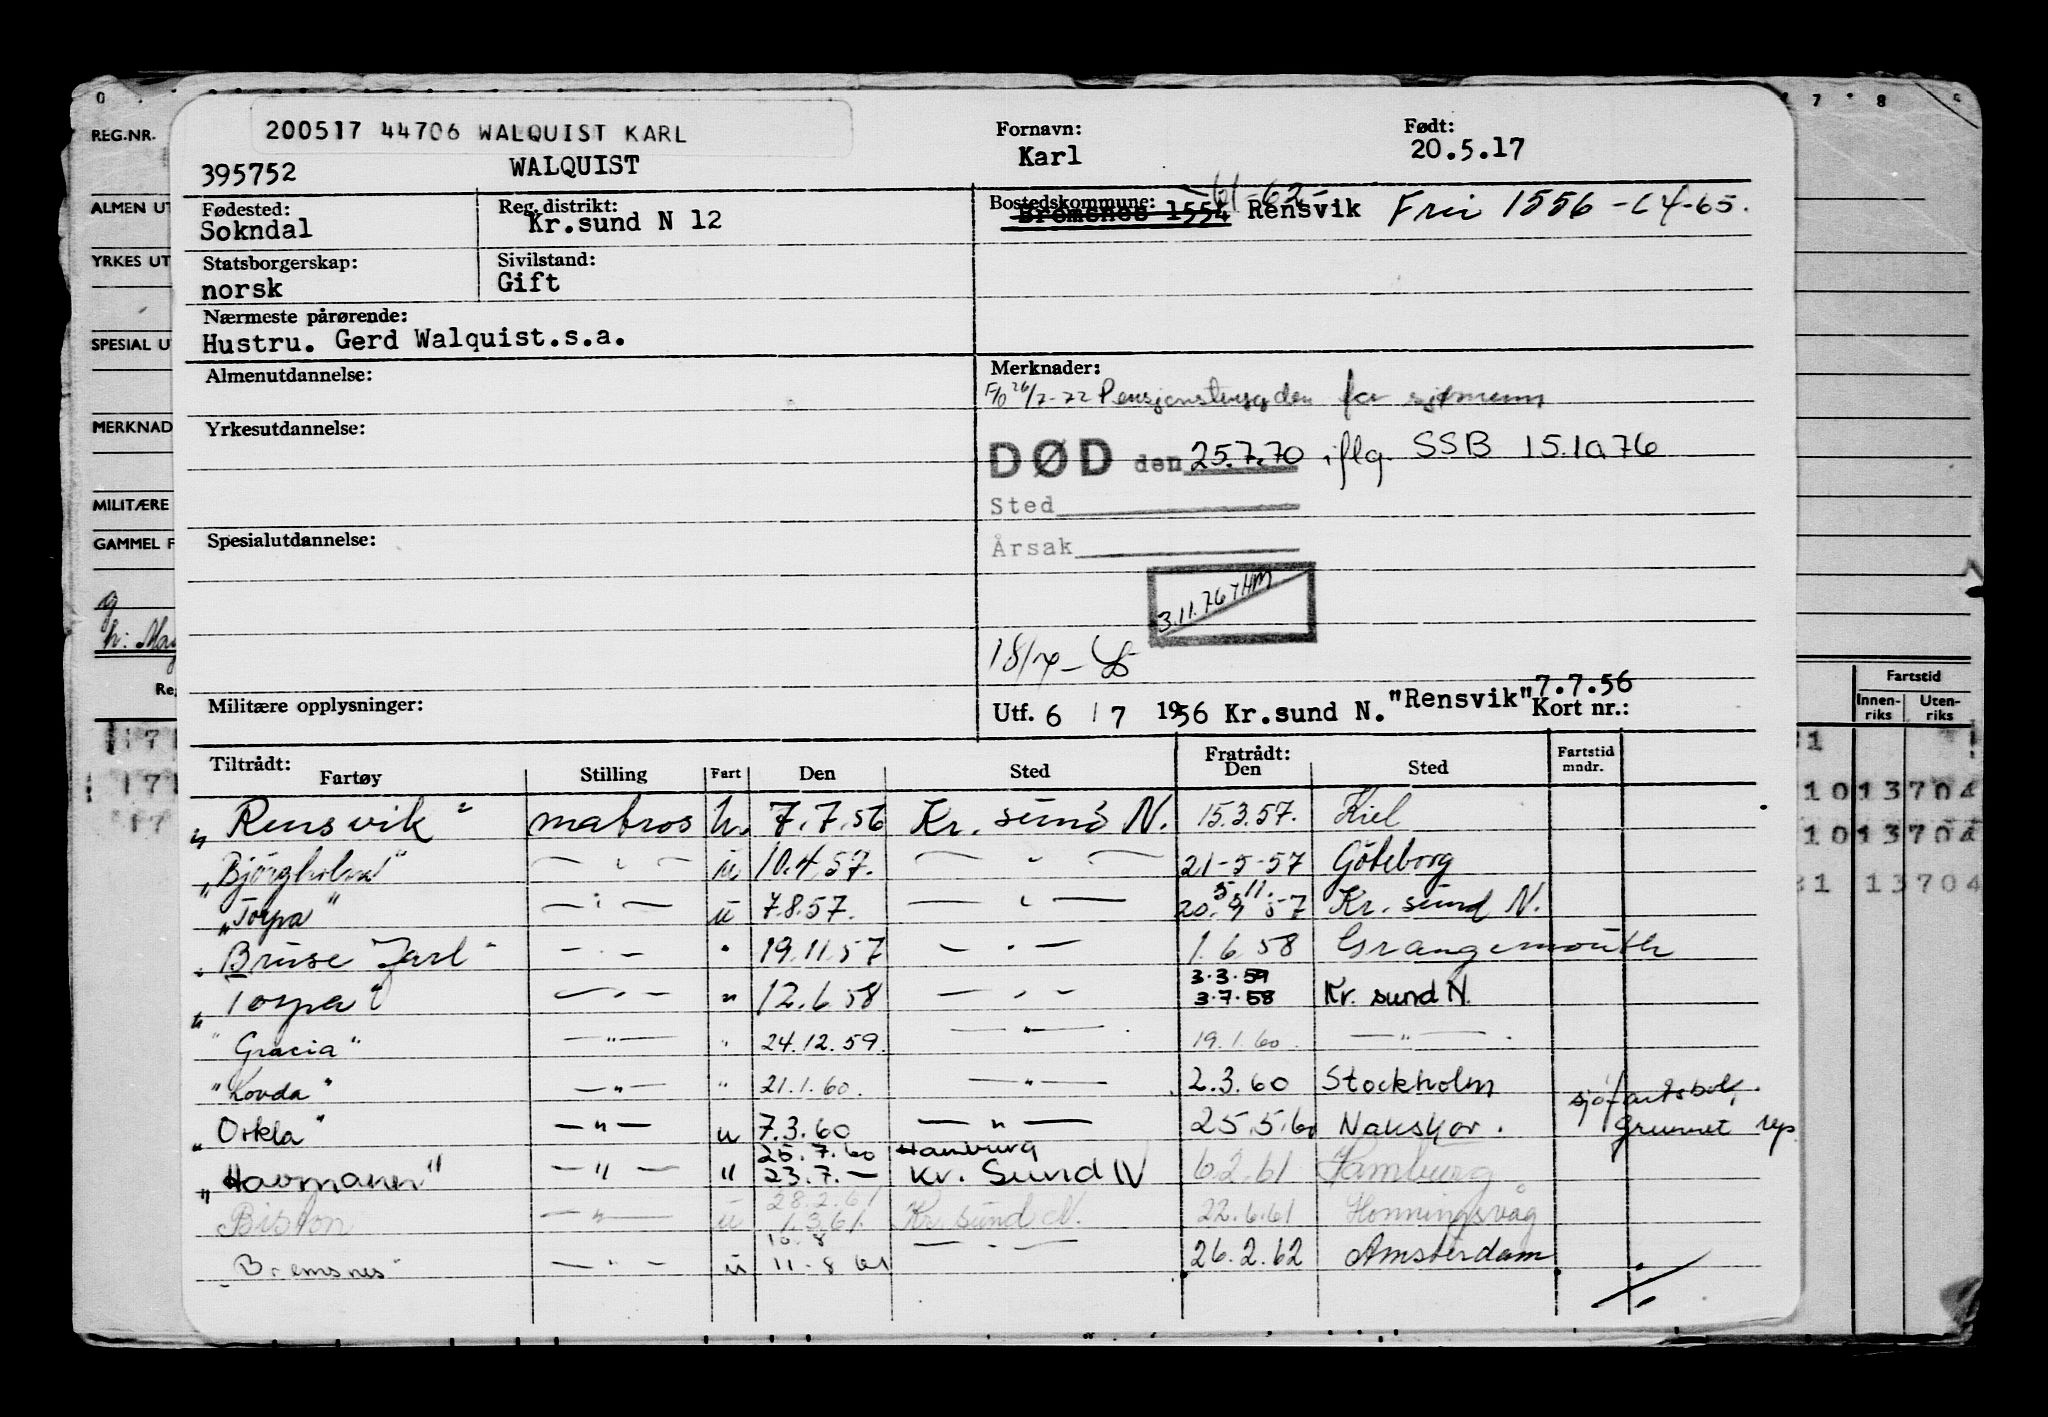 0 7 8
REG.NR.
200517 44706 WALQUIST KARL
395752 WALQUIST
Fornavn: Karl
Født: 20.5.17
ALMEN UT
Fødested: Sokndal
Reg. distrikt: Kr.sund N 12
Bostedskommune: Bremsnes 1554 -61-62- Rensvik Frei 1556 -64-65.
YRKES UT
Statsborgerskap: norsk
Sivilstand: Gift
Nærmeste pårørende:
SPESIAL U
Hustru. Gerd Walquist.s.a.
Almenutdannelse:
Merknader:
26/7-72 Pensjonstrygden for sjømenn
MERKNAD
Yrkesutdannelse:
DØD den 25.7.70 iflg. SSB 15.10.76
MILITÆRE
Sted
GAMMEL F
Spesialutdannelse:
Årsak
3.11.76 THM
Militære opplysninger:
Utf. 6 / 7 1956 Kr.sund N. "Rensvik" 7.7.56
Kort nr.:
Fartstid
Innen-riks Uten-riks
Tiltrådt: Fratrådt:
Fartøy Stilling Fart Den Sted Den Sted Fartstid mndr.
"Rensvik" matros u. 7.7.56 Kr. sund N. 15.3.57. Kiel
"Björgholm" — " — u 10.4.57. — " — 21-5-57 Göteborg
"Torpa" — " — u 7.8.57. — " — 5.11. 20.9 57 Kr. sund N.
"Bruse Jarl" — " — " 19.11.57 — " — 1.6.58 Grangemouth
"Torpa" — " — " 12.6.58 — " — 3.3.59 3.7.58 Kr. sund N.
"Gracia" — " — " 24.12.59. — " — 19.1.60. — " —
"Kovda" — " — " 21.1.60. — " — 2.3.60 Stockholm
"Orkla" — " — u 7.3.60 — " — 25.5.60 Nakskov. sjøfartsbok,
grunnet rep
"Havmann" — " — " 25.7.60 23.7.— Hamburg Kr. Sund N 6.2.61 Hamburg
Biston — " — u 28.2.61 1.3.61. Kr. sund N. 22.6.61 Honningsvåg
"Bremsnes" — " — u 10.8 11.8 61 — " — 26.2.62 Amsterdam